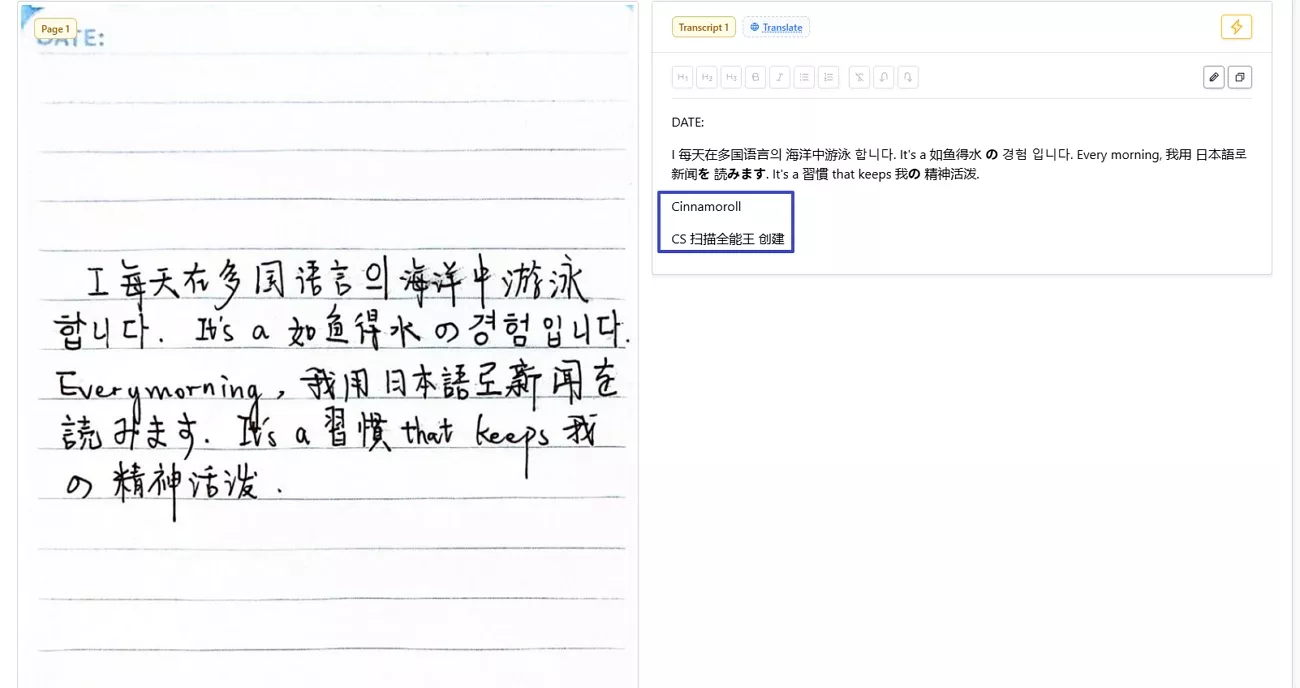 Page 1
DATE:
I 每天在多国语言의 海洋中游泳
합니다. It's a 如鱼得水 の 경험 입니다.
Every morning, 我用 日本語로 新闻を
読みます. It's a 習慣 that keeps 我
の 精神活泼.
Transcript 1
Translate
H1 H2 H3 B I
DATE:
I 每天在多国语言의 海洋中游泳 합니다. It's a 如鱼得水 の 경험 입니다. Every morning, 我用 日本語로
新闻を 読みます. It's a 習慣 that keeps 我の 精神活泼.
Cinnamoroll
CS 扫描全能王 创建